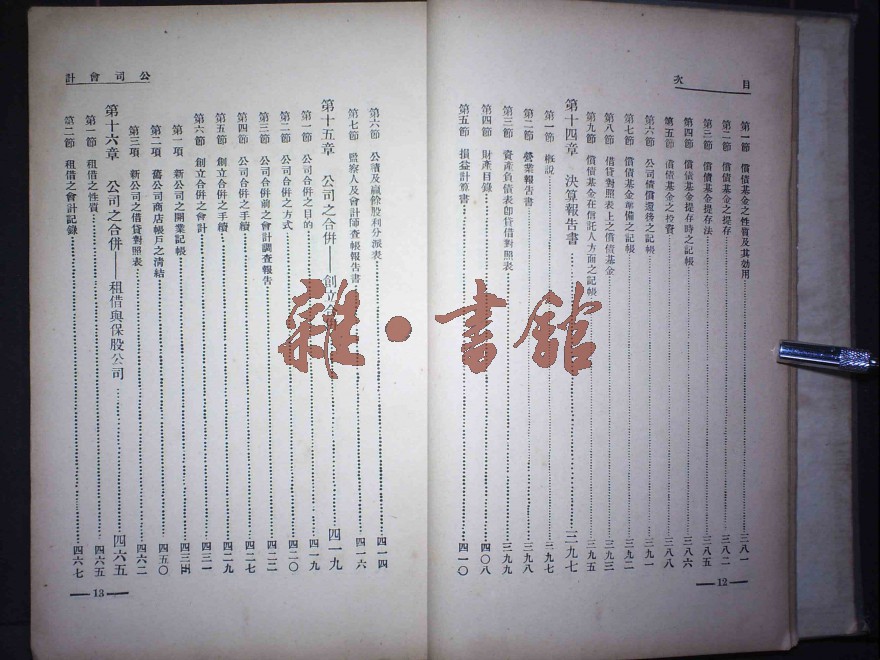 目次
第一節 償債基金之性質及其効用 三八一
第二節 償債基金之提存 三八二
第三節 償債基金提存法 三八五
第四節 償債基金提存時之記帳 三八六
第五節 償債基金之投資 三八八
第六節 公司債償還後之記帳 三九一
第七節 償債基金準備之記帳 三九二
第八節 借貸對照表上之償債基金 三九三
第九節 償債基金在信託人方面之記帳 三九五
第十四章 決算報告書 三九七
第一節 概說 三九七
第二節 營業報告書 三九八
第三節 資產負債表即貸借對照表 三九九
第四節 財產目錄 四〇八
第五節 損益計算書 四一〇
— 12 —
公司會計
第六節 公積及贏餘股利分派表 四一四
第七節 監察人及會計師查帳報告書 四一六
第十五章 公司之合併——創立合併 四一九
第一節 公司合併之目的 四一九
第二節 公司合併之方式 四二〇
第三節 公司合併前之會計調查報告 四二二
第四節 公司合併之手續 四二七
第五節 創立合併之手續 四二九
第六節 創立合併之會計 四三一
第一項 新公司之開業記帳 四三五
第二項 舊公司商店帳戶之清結 四五〇
第三項 新公司之借貸對照表 四六二
第十六章 公司之合併——租借與保股公司 四六五
第一節 租借之性質 四六五
第二節 租借之會計記錄 四六七
— 13 —
雜•書館